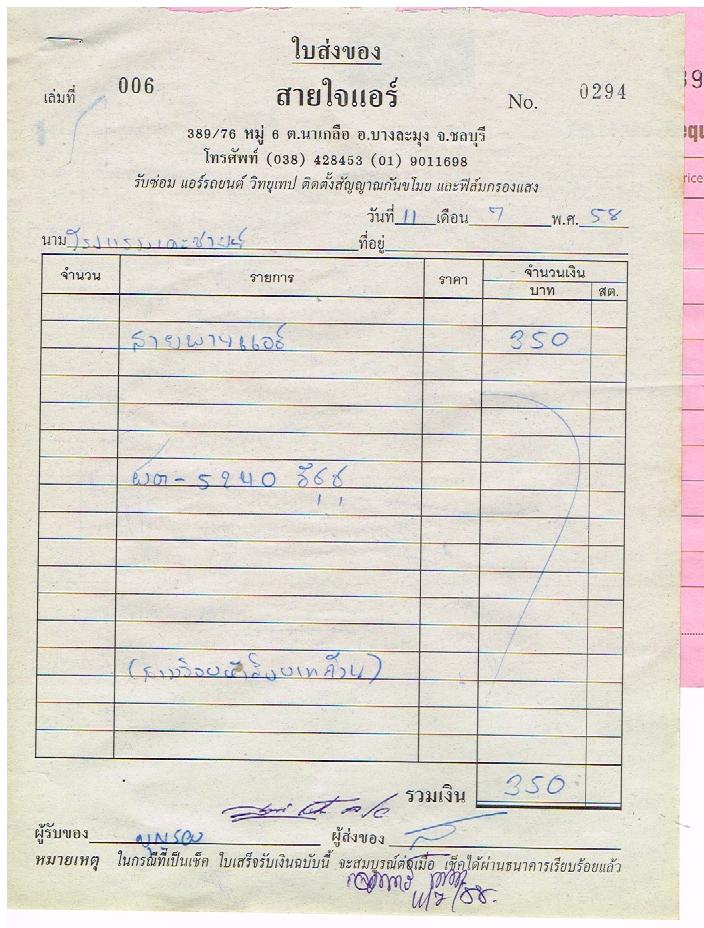 ใบส่งของ
เล่มที่ 006 สายใจแอร์ No. 0294
389/76 หมู่ 6 ต.นาเกลือ อ.บางละมุง จ.ชลบุรี
โทรศัพท์ (038) 428453 (01) 9011698
รับซ่อม แอร์รถยนต์ วิทยุเทป ติดตั้งสัญญาณกันขโมย และฟิล์มกรองแสง
วันที่ 11 เดือน 7 พ.ศ. 58
นาม โรงแรม ที่อยู่
จำนวน รายการ ราคา จำนวนเงิน
บาท สต.
สายพานแอร์ 350
ผต-5240 อีซูซุ
(สามร้อยห้าสิบบาทถ้วน)
รวมเงิน 350
ผู้รับของ บุญรอง ผู้ส่งของ
หมายเหตุ ในกรณีที่เป็นเช็ค ใบเสร็จรับเงินฉบับนี้ จะสมบูรณ์ต่อเมื่อ เช็คได้ผ่านธนาคารเรียบร้อยแล้ว
11/7/58.